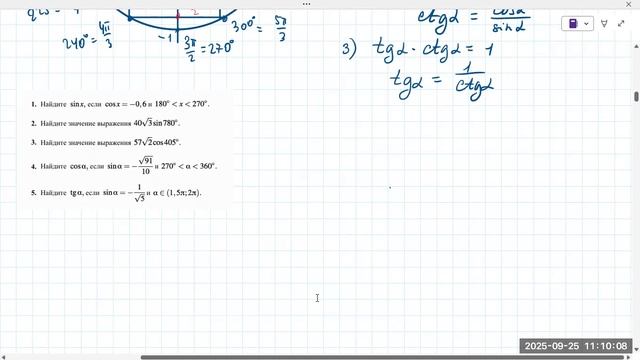 ctgα = cosα/sinα
300° = 5π/3
240° = 4π/3
-1
3π/2 = 270°
3) tgα · ctgα = 1
tgα = 1/ctgα
1. Найдите sin x, если cos x = −0,6 и 180° < x < 270°.
2. Найдите значение выражения 40√3 sin 780°.
3. Найдите значение выражения 57√2 cos 405°.
4. Найдите cos α, если sin α = −√91/10 и 270° < α < 360°.
5. Найдите tg α, если sin α = −1/√5 и α ∈ (1,5π; 2π).
2025-09-25 11:10:08